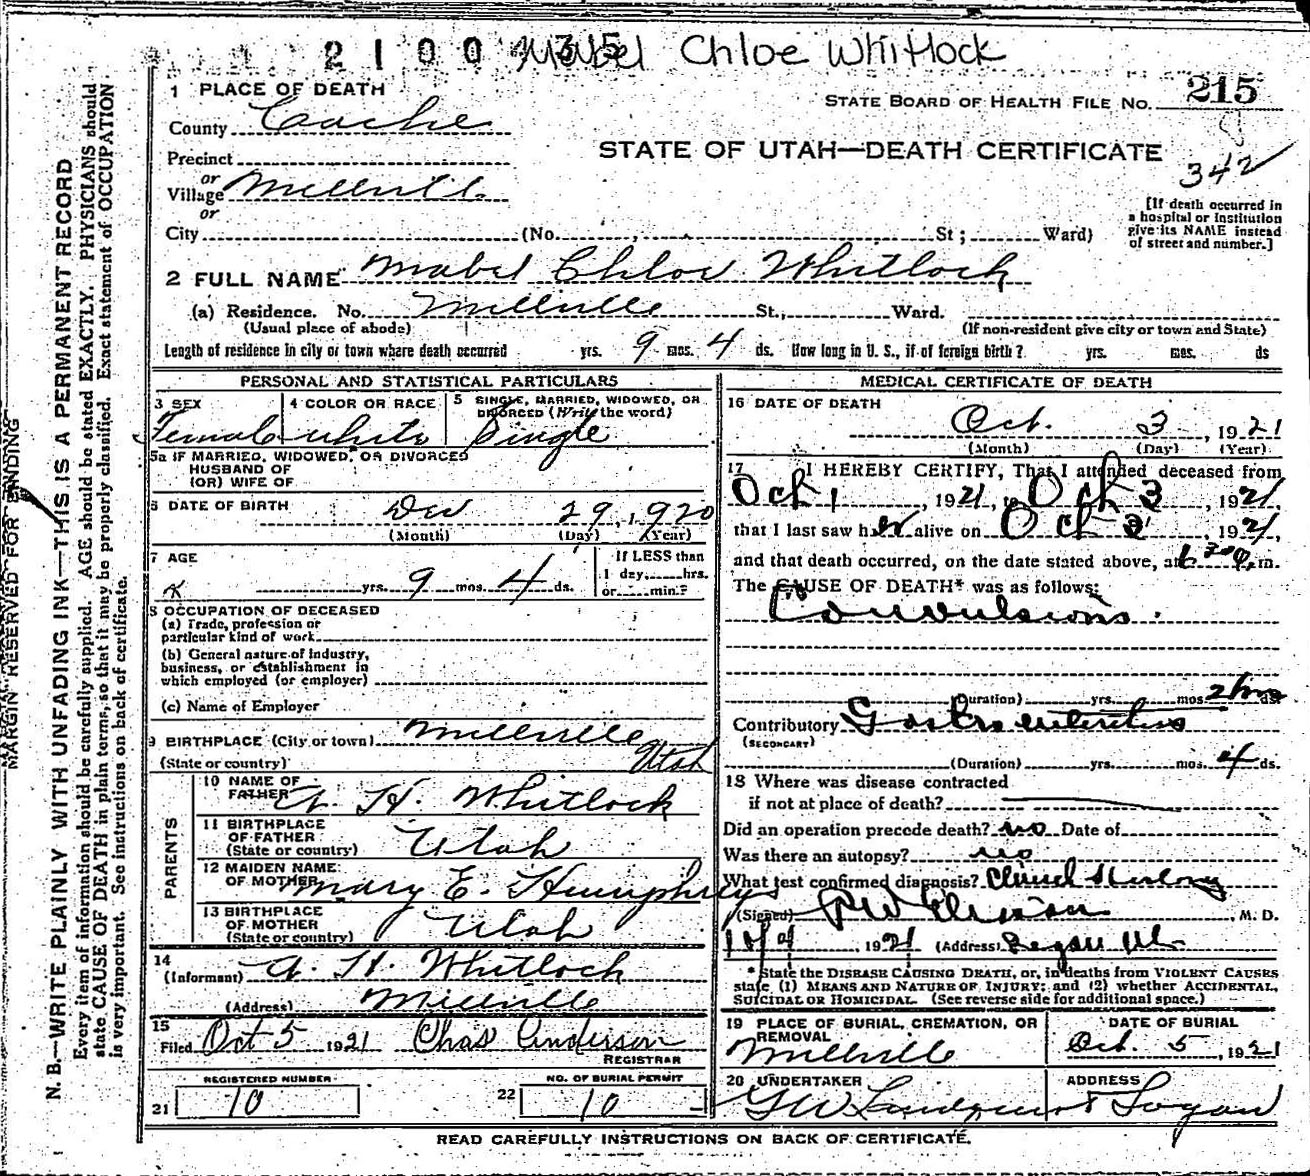 2100
Mabel Chloe Whitlock
1 PLACE OF DEATH
STATE BOARD OF HEALTH FILE NO. 215
County Cache
STATE OF UTAH—DEATH CERTIFICATE
342
Precinct
or
Village Millville
or
[If death occurred in
a hospital or institution
give its NAME instead
of street and number.]
City (No. St; Ward)
2 FULL NAME Mabel Chloe Whitlock
(a) Residence. No. Millville St., Ward.
(Usual place of abode) (If non-resident give city or town and State)
Length of residence in city or town where death occurred yrs. 9 mos. 4 ds. How long in U. S., if of foreign birth? yrs. mos. ds
PERSONAL AND STATISTICAL PARTICULARS
3 SEX
Female
4 COLOR OR RACE
White
5 SINGLE, MARRIED, WIDOWED, OR
DIVORCED (Write the word)
Single
5a IF MARRIED, WIDOWED, OR DIVORCED
HUSBAND OF
(OR) WIFE OF
6 DATE OF BIRTH Dec 29, 1920
(Month) (Day) (Year)
7 AGE
yrs. 9 mos. 4 ds.
If LESS than
1 day, hrs.
or min.?
8 OCCUPATION OF DECEASED
(a) Trade, profession or
particular kind of work
(b) General nature of Industry,
business, or establishment in
which employed (or employer)
(c) Name of Employer
9 BIRTHPLACE (City or town) Millville
(State or country) Utah
PARENTS
10 NAME OF
FATHER A. H. Whitlock
11 BIRTHPLACE
OF FATHER
(State or country) Utah
12 MAIDEN NAME
OF MOTHER Mary E. Humphreys
13 BIRTHPLACE
OF MOTHER
(State or country) Utah
14
(Informant) A. H. Whitlock
(Address) Millville
15
Filed Oct 5 1921 Chas Anderson
REGISTRAR
REGISTERED NUMBER
21 10
NO. OF BURIAL PERMIT
22 10
MEDICAL CERTIFICATE OF DEATH
16 DATE OF DEATH
Oct. 3, 1921
(Month) (Day) (Year)
17 I HEREBY CERTIFY, That I attended deceased from
Oct 1, 1921, to Oct 3, 1921,
that I last saw her alive on Oct 3, 1921,
and that death occurred, on the date stated above, at m.
The CAUSE OF DEATH* was as follows:
Convulsions.
(Duration) yrs. mos. 2 hrs ds.
Contributory Gastroenteritis
(SECONDARY)
(Duration) yrs. mos. 4 ds.
18 Where was disease contracted
if not at place of death?
Did an operation precede death? no Date of
Was there an autopsy? no
What test confirmed diagnosis?
(Signed) M. D.
10/4, 1921 (Address) Logan Ut
* State the DISEASE CAUSING DEATH, or, in deaths from VIOLENT CAUSES
state (1) MEANS AND NATURE OF INJURY; and (2) whether ACCIDENTAL,
SUICIDAL OR HOMICIDAL. (See reverse side for additional space.)
19 PLACE OF BURIAL, CREMATION, OR
REMOVAL
Millville
DATE OF BURIAL
Oct. 5, 1921
20 UNDERTAKER
G W Lindquist
ADDRESS
Logan
READ CAREFULLY INSTRUCTIONS ON BACK OF CERTIFICATE.
MARGIN RESERVED FOR BINDING
N. B.—WRITE PLAINLY WITH UNFADING INK—THIS IS A PERMANENT RECORD
Every item of information should be carefully supplied. AGE should be stated EXACTLY. PHYSICIANS should
state CAUSE OF DEATH in plain terms, so that it may be properly classified. Exact statement of OCCUPATION
is very important. See instructions on back of certificate.